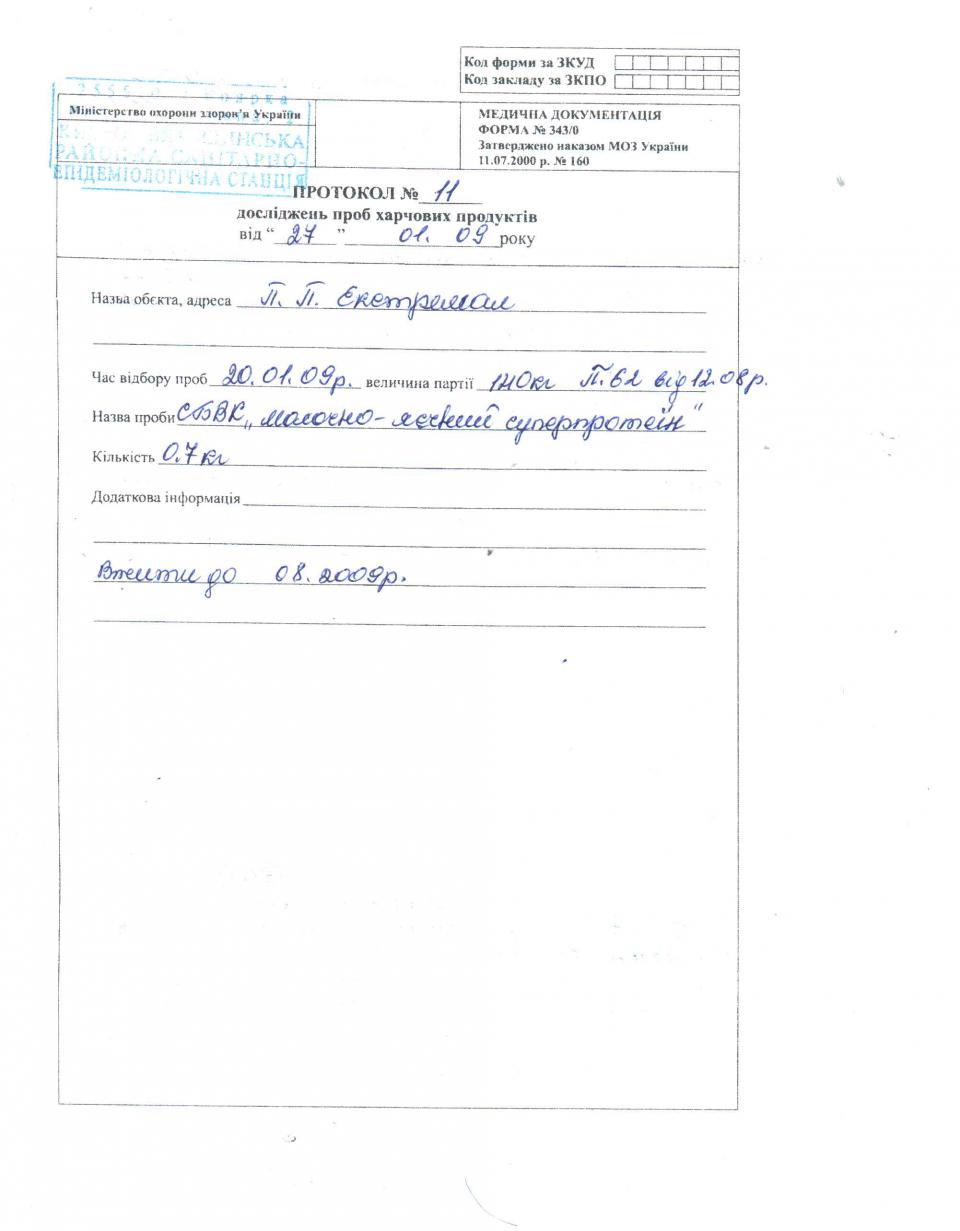 Код форми за ЗКУД
Код закладу за ЗКПО
Міністерство охорони здоров'я України
РАЙОННА САНІТАРНО-
ЕПІДЕМІОЛОГІЧНА СТАНЦІЯ
МЕДИЧНА ДОКУМЕНТАЦІЯ
ФОРМА № 343/0
Затверджено наказом МОЗ України
11.07.2000 р. № 160
ПРОТОКОЛ № 11
досліджень проб харчових продуктів
від “ 27 ” 01. 09 року
Назва обєкта, адреса П. П. Екстремал
Час відбору проб 20.01.09р. величина партії 140кг П.62 від 12.08р.
Назва проби СБВК „молочно-яєчний суперпротеїн"
Кількість 0.7кг
Додаткова інформація
Вжити до 08.2009р.